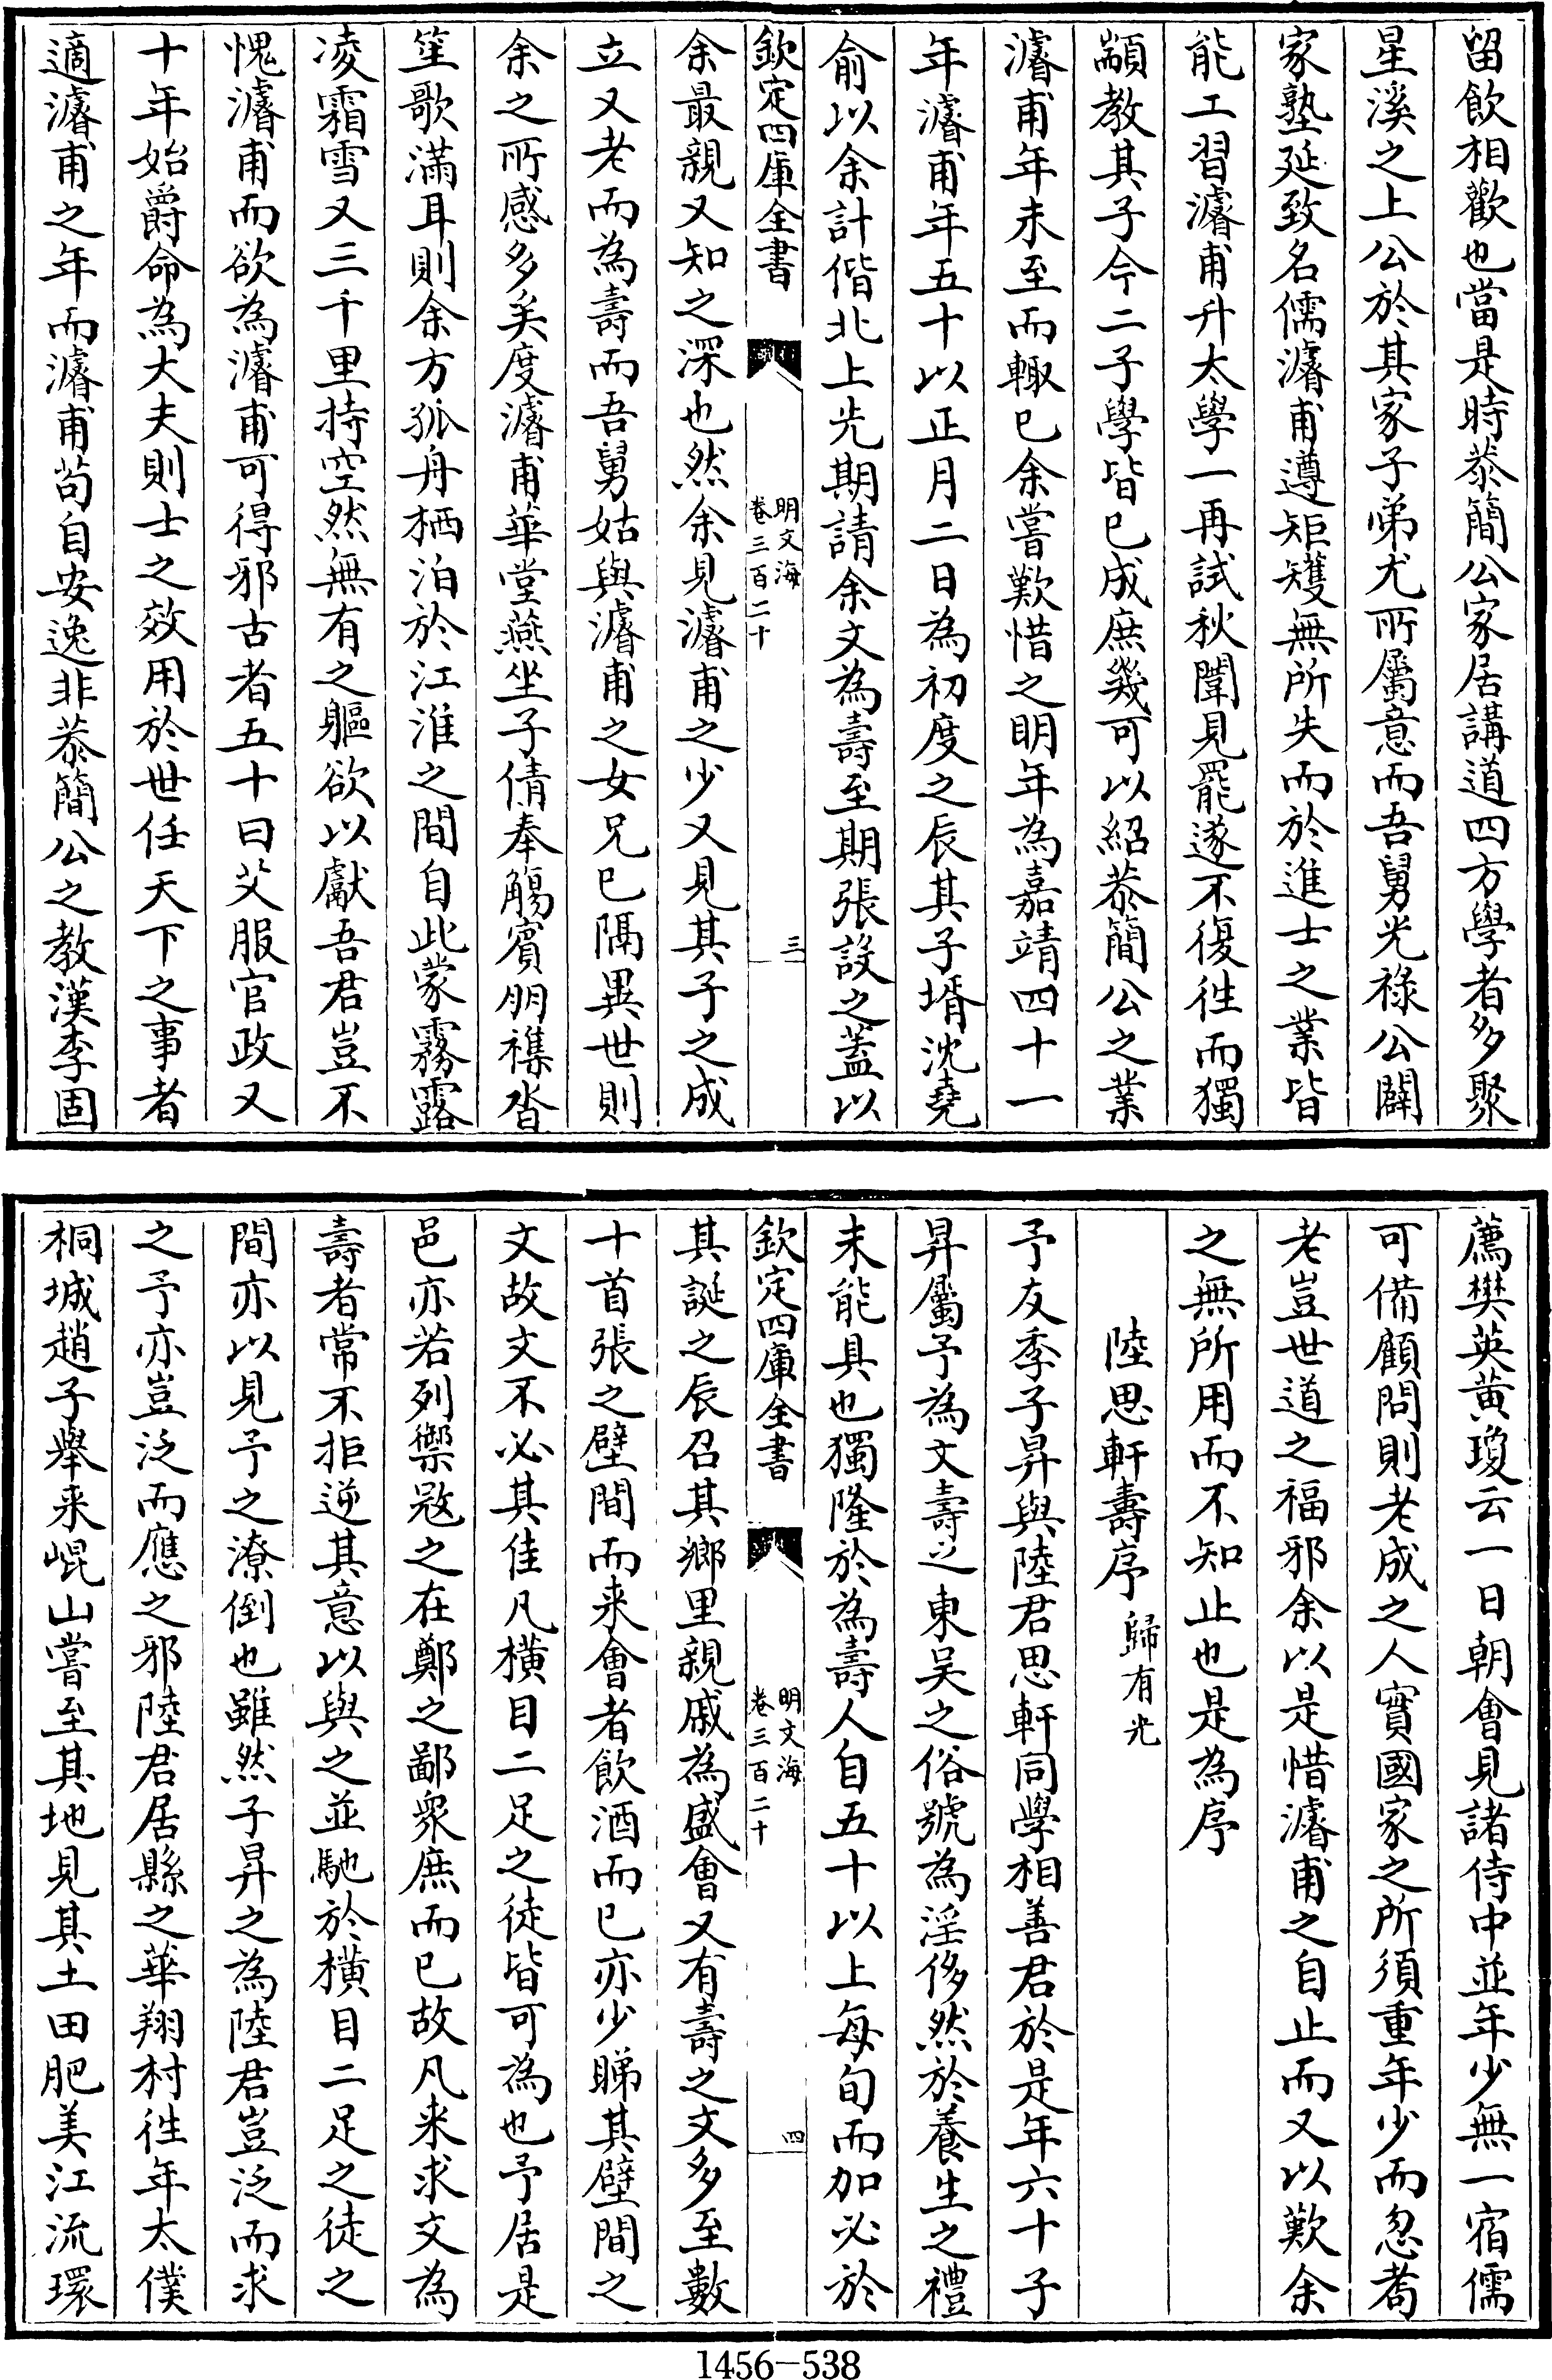 留飲相歡也當是時恭簡公家居講道四方學者多聚
星溪之上公於其家子弟尤所屬意而吾舅光祿公闢
家塾延致名儒濬甫遵矩矱無所失而於進士之業皆
能工習濬甫升太學一再試秋闈見罷遂不復徃而獨
顓教其子今二子學皆已成庶幾可以紹恭簡公之業
濬甫年未至而輙已余嘗歎惜之明年為嘉靖四十一
年濬甫年五十以正月二日為初度之辰其子壻沈堯
俞以余計偕北上先期請余文為壽至期張設之蓋以
欽定四庫全書
明文海
卷三百二十
三
余最親又知之深也然余見濬甫之少又見其子之成
立又老而為壽而吾舅姑與濬甫之女兄已隔異世則
余之所感多矣度濬甫華堂燕坐子倩奉觴賓朋襍沓
笙歌滿耳則余方孤舟栖泊於江淮之間自此蒙霧露
凌霜雪又三千里持空然無有之軀欲以獻吾君豈不
愧濬甫而欲為濬甫可得邪古者五十曰艾服官政又
十年始爵命為大夫則士之效用於世任天下之事者
適濬甫之年而濬甫苟自安逸非恭簡公之教漢李固
薦樊英黃瓊云一日朝會見諸侍中並年少無一宿儒
可備顧問則老成之人實國家之所須重年少而忽耇
老豈世道之福邪余以是惜濬甫之自止而又以歎余
之無所用而不知止也是為序
陸思軒壽序 歸有光
予友季子昇與陸君思軒同學相善君於是年六十子
昇屬予為文壽之東吳之俗號為淫侈然於養生之禮
未能具也獨隆於為壽人自五十以上每旬而加必於
欽定四庫全書
明文海
卷三百二十
四
其誕之辰召其鄉里親戚為盛會又有壽之文多至數
十首張之壁間而来會者飲酒而已亦少睇其壁間之
文故文不必其佳凡横目二足之徒皆可為也予居是
邑亦若列禦㓂之在鄭之鄙衆庶而已故凡来求文為
壽者常不拒逆其意以與之並馳於横目二足之徒之
間亦以見予之潦倒也雖然子昇之為陸君豈泛而求
之予亦豈泛而應之邪陸君居縣之華翔村徃年太僕
桐城趙子舉来崐山嘗至其地見其土田肥美江流環
1456-538